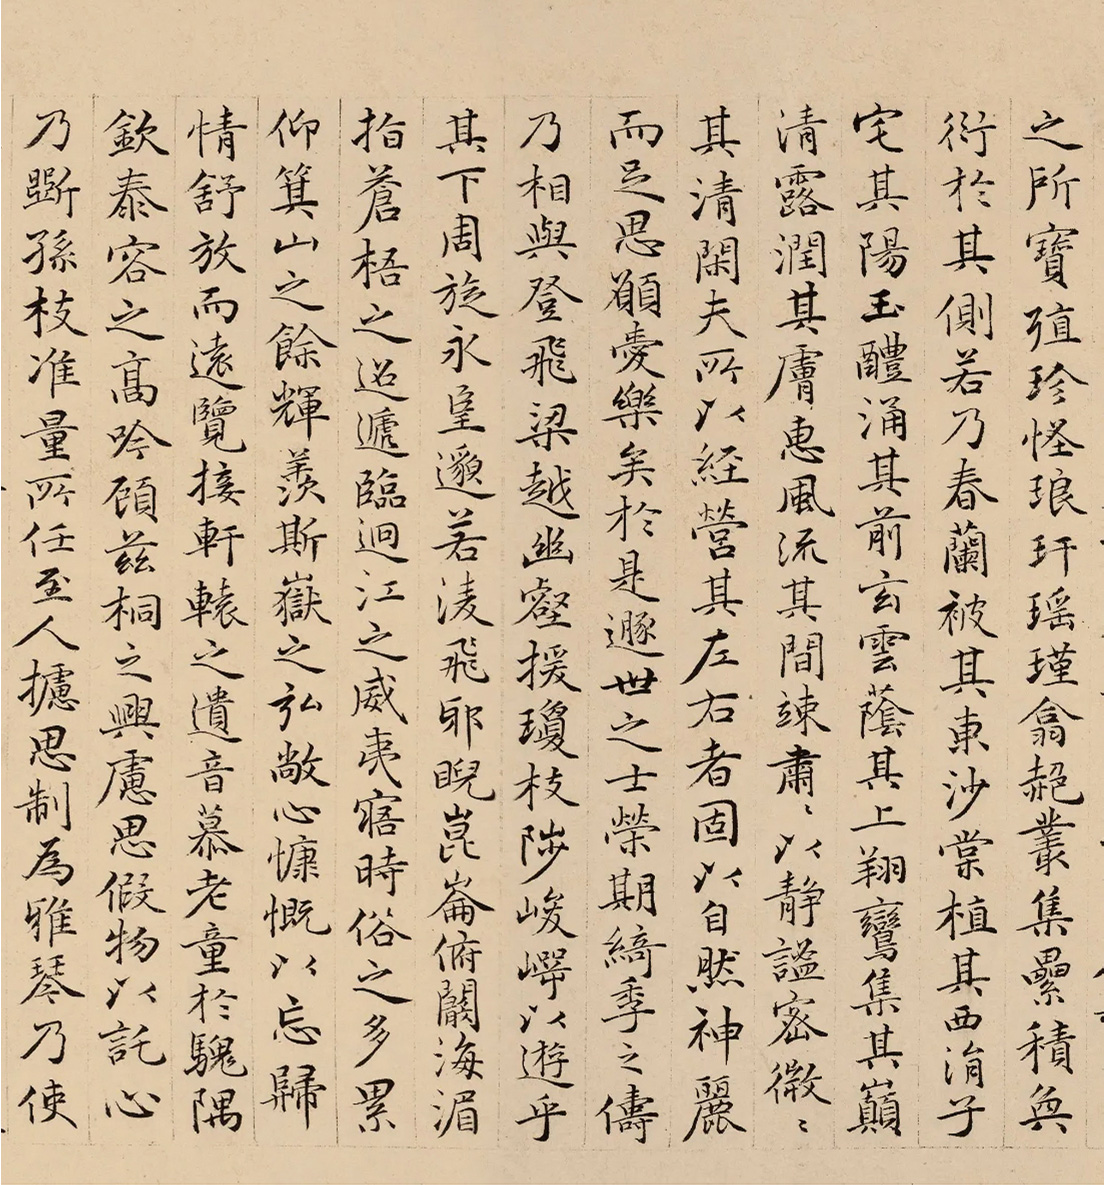 之所寶殖珍怪琅玕瑶瑾翕赩叢集纍積奐
衍於其側若乃春蘭被其東沙棠植其西涓子
宅其陽玉醴涌其前玄雲蔭其上翔鸞集其巔
清露潤其膚惠風流其間竦肅〻以静謐密微〻
其清閑夫所以經營其左右者固以自然神麗
而足思願愛樂矣於是遯世之士榮期綺季之儔
乃相與登飛梁越幽壑援瓊枝陟峻崿以遊乎
其下周旋永望邈若淩飛邪睨崑崙俯闞海湄
指蒼梧之迢遞臨迴江之威夷寤時俗之多累
仰箕山之餘輝羨斯嶽之弘敞心慷慨以忘歸
情舒放而遠覽接軒轅之遺音慕老童於騩隅
欽泰容之高吟顧兹桐之興慮思假物以託心
乃斲孫枝准量所任至人攄思制為雅琴乃使